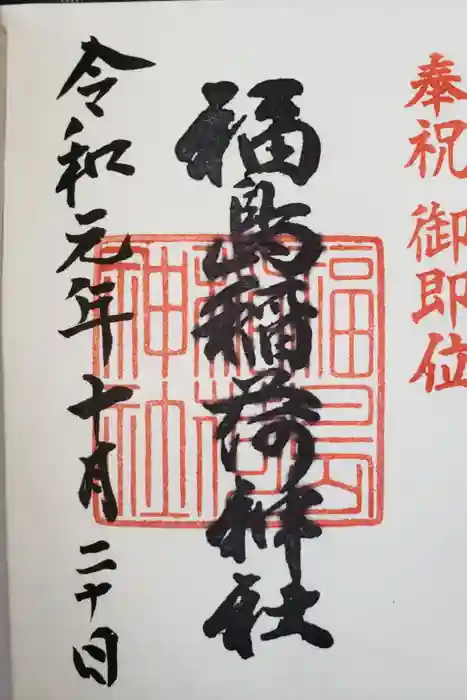 奉祝 御即位
福島稲荷神社
令和元年十月二十日
福島稲荷神社